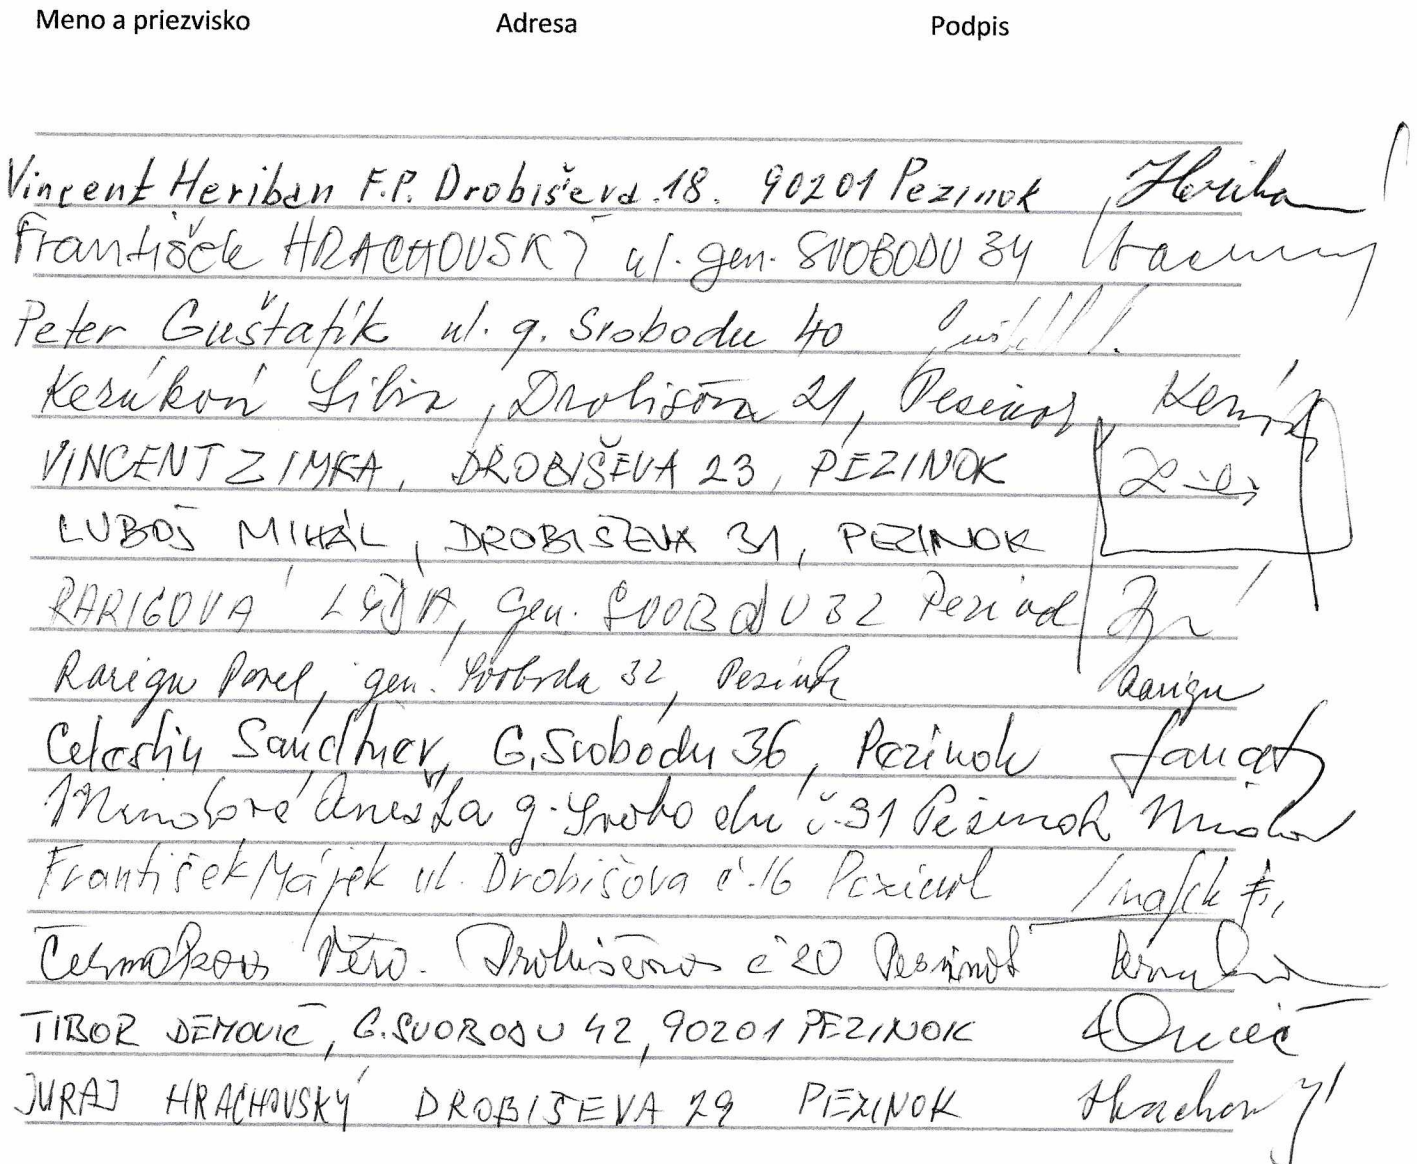 Meno a priezvisko Adresa Podpis
Vincent Heriban F.P. Drobiševa 18. 90201 Pezinok
František HRACHOVSKÝ ul. gen. SVOBODU 34
Peter Guštafík ul. g. Svobodu 40
Drobišova 21, Pezinok
VINCENT ZIMKA, DROBIŠEVA 23, PEZINOK
ĽUBOŠ MIHÁL, DROBIŠEVA 31, PEZINOK
RARIGOVÁ LÝDIA, Gen. SVOBODU 32 Pezinok
Rarigu Pavel, gen. Svobodu 32, Pezinok Rarigu
Celestin Sandtner, G. Svobodu 36, Pezinok
Anežka g. Svobodu č. 31 Pezinok
František Májek ul. Drobišova č. 16 Pezinok Májek F,
Čermáková č 20 Pezinok
TIBOR DEMOVIČ, G. SVOBODU 42, 90201 PEZINOK
JURAJ HRACHOVSKÝ DROBIŠEVA 29 PEZINOK